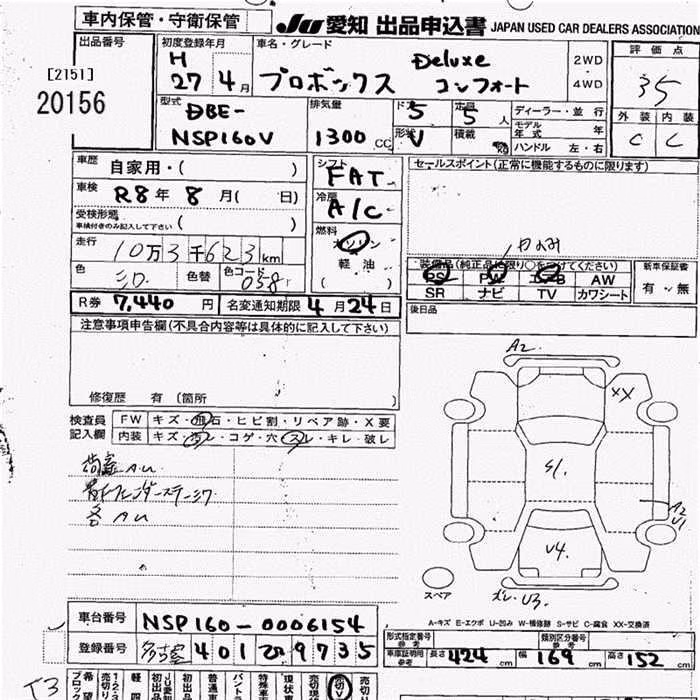 車内保管・守衛保管
JU 愛知 出品申込書 JAPAN USED CAR DEALERS ASSOCIATION
出品番号
[2151]
20156
初度登録年月
H
27 4月
車名・グレード
Deluxe
プロボックス コンフォート
2WD
4WD
評価点
3.5
外装 内装
C C
型式
DBE-
NSP160V
排気量
1300 CC
ドア 5
形状 V
定員 5 人
積載
ディーラー・並行
モデル年式 年
ハンドル 左・右
車歴
自家用・( )
車検
R8年 8月( 日)
受検形態
車検付きのみ記入して下さい ( )
走行
10万3千623km
色
シロ
色替
色コード
058
シフト
FAT
冷房
A/C
燃料
ガソリン
軽油
( )
セールスポイント(正常に機能するものに限ります)
装備品(純正品に限り○をつけてください)
PS PW エアB AW
SR ナビ TV カワシート
新車保証書
有 ～ 無
R券 7,440 円
名変通知期限 4月24日
後日品
注意事項申告欄(不具合内容等は具体的に記入して下さい)
修復歴 有 〔箇所
検査員
記入欄
FW キズ・飛石・ヒビ割・リペア跡・X要
内装 キズ・汚レ・コゲ・穴・スレ・キレ・破レ
荷室 A.U
各 AU
A2
XX
S1.
A2
U1
U4.
スペア
ズレ・U3.
A-キズ E-エクボ U-凹み W-補修跡 S-サビ C-腐食 XX-交換済
車台番号 NSP160-0006154
登録番号 名古屋 401 9735
形式指定番号
参考
類別区分番号
参考
車庫証明用
参考
長さ 424 cm 幅 169 cm 高さ 152 cm